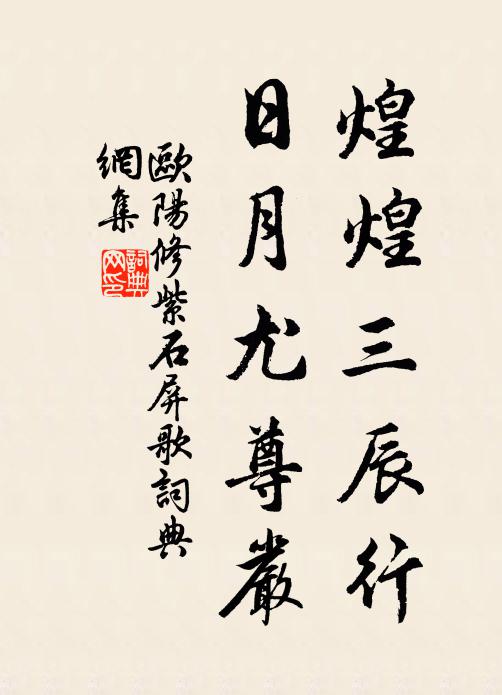 煌煌三辰行
日月尤尊嚴
歐陽修紫石屏歌詞典
網集
詞典
网印